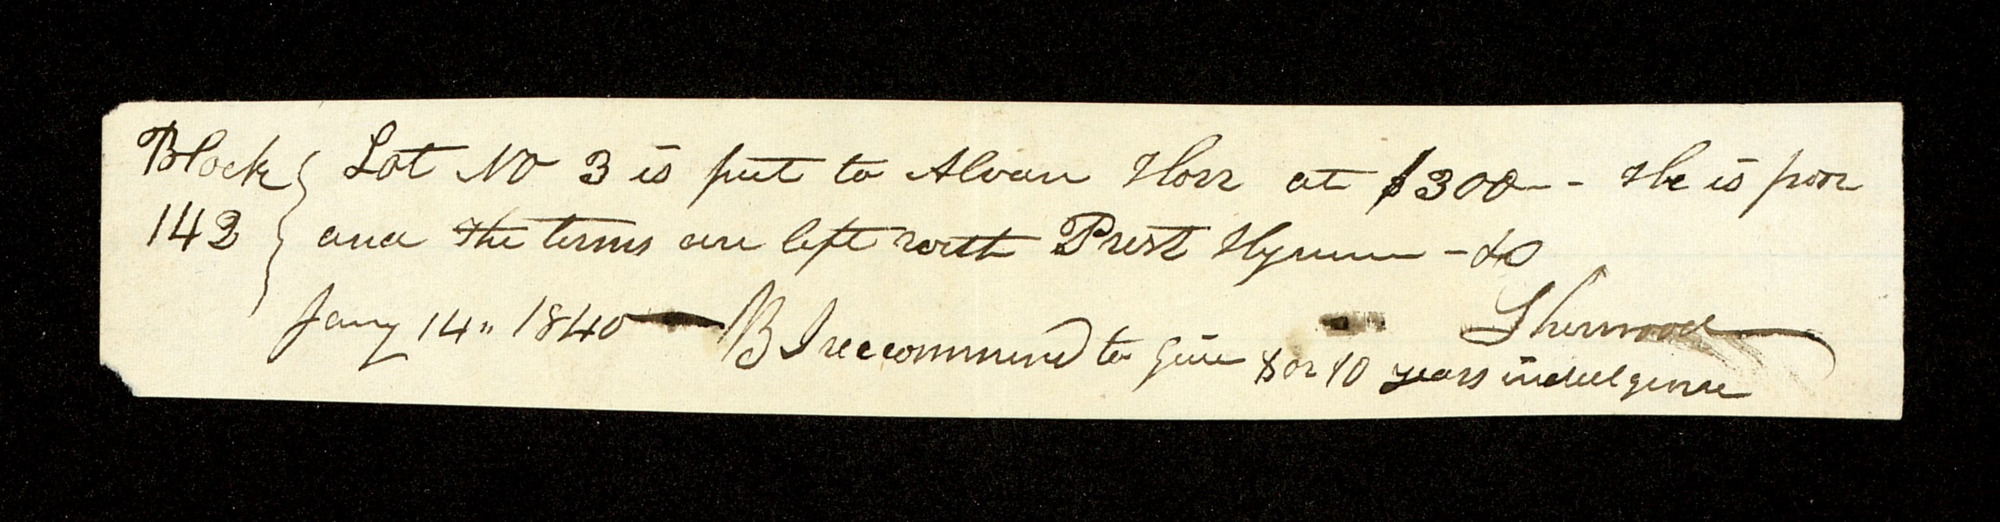 Block { Lot No 3 is put to Alvan Horr at $300 - - He is poor
142 { and the terms are left with Prest Hyrum - &
Jany 14" 1840 — Sherwood
I reccommend to give 8 or 10 years indulgence